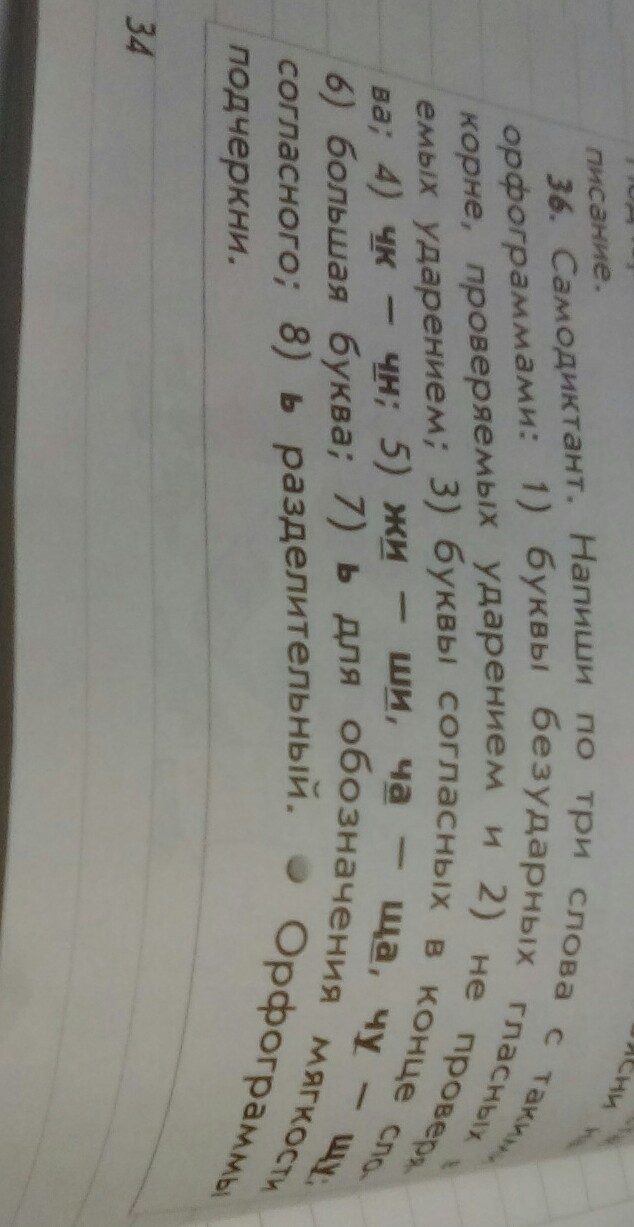 писание.
36. Самодиктант. Напиши по три слова с таким
орфограммами: 1) буквы безударных гласных
корне, проверяемых ударением и 2) не проверя
емых ударением; 3) буквы согласных в конце сло
ва; 4) чк – чн; 5) жи – ши, ча – ща, чу – щу;
6) большая буква; 7) ь для обозначения мягкости
согласного; 8) ь разделительный. Орфограммы
подчеркни.
34